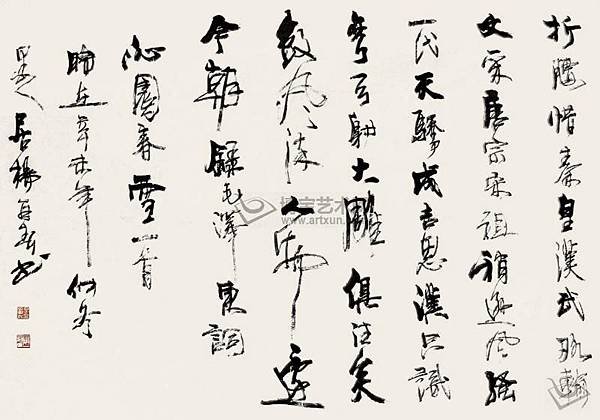 折腰惜秦皇漢武略輸
文采唐宗宋祖稍遜風騷
一代天驕成吉思漢只識
彎弓射大雕俱往矣
數風流人物還
今朝錄毛澤東詞
沁園春雪一首
時在辛未年仲冬
居楊再春書
www.artxun.com